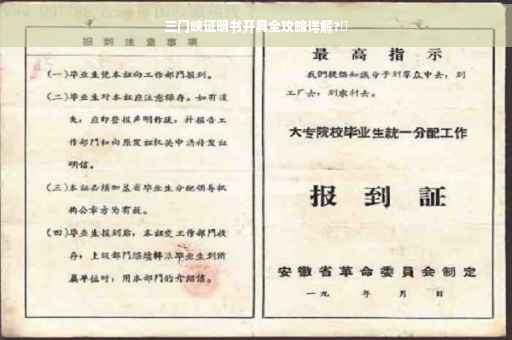 三门峡证明书开具全攻略详解?
报到注意事项
(一)毕业生凭本证向工作部门报到。
(二)毕业生对本证应注意保存。如有遗
失，应即登报声明作废，并报告工
作部门和向原发证机关申请补发证
明信。
(三)本证必须加盖省毕业生分配领导机
构公章方为有效。
(四)毕业生报到后，本证交工作部门收
存；上级部门继续转派毕业生到所
属单位时，用本部门的介绍信。
最高指示
我们提倡知识分子到群众中去，到
工厂去，到农村去。
大专院校毕业生统一分配工作
报到证
安徽省革命委员会制定
一九 年 月 日